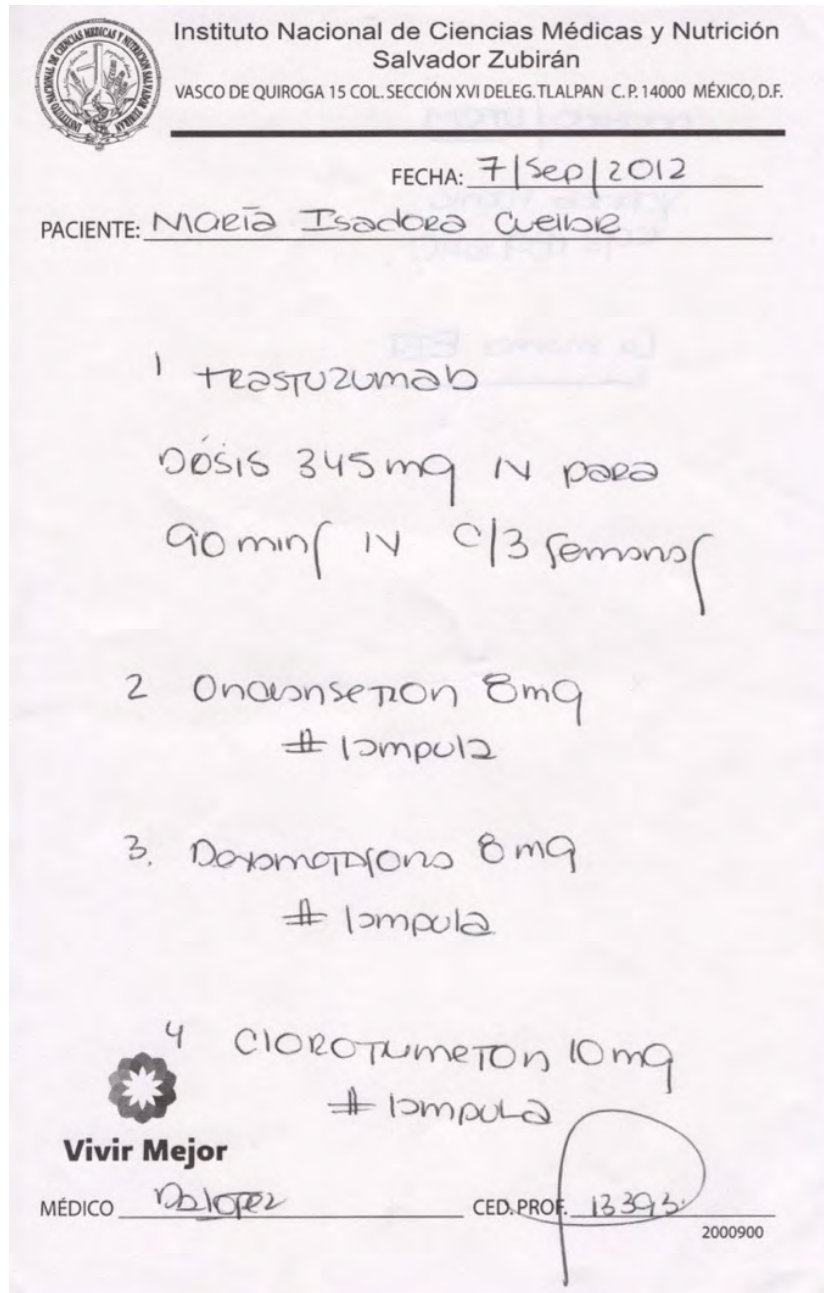 Instituto Nacional de Ciencias Médicas y Nutrición
Salvador Zubirán
VASCO DE QUIROGA 15 COL. SECCIÓN XVI DELEG. TLALPAN C. P. 14000 MÉXICO, D.F.
INSTITUTO NACIONAL DE CIENCIAS MEDICAS Y NUTRICION SALVADOR ZUBIRAN
FECHA: 7/Sep/2012
PACIENTE: María Isadora Cuellar
1 trastuzumab
Dósis 345 mg IV para
90 mins IV c/3 semanas
2 Ondansetron 8mg
# 1 ampula
3. Dexametasona 8 mg
# 1 ampula
4 Clorotrimeton 10 mg
# 1 ampula
Vivir Mejor
MÉDICO Da Lopez CED. PROF. 13393
2000900